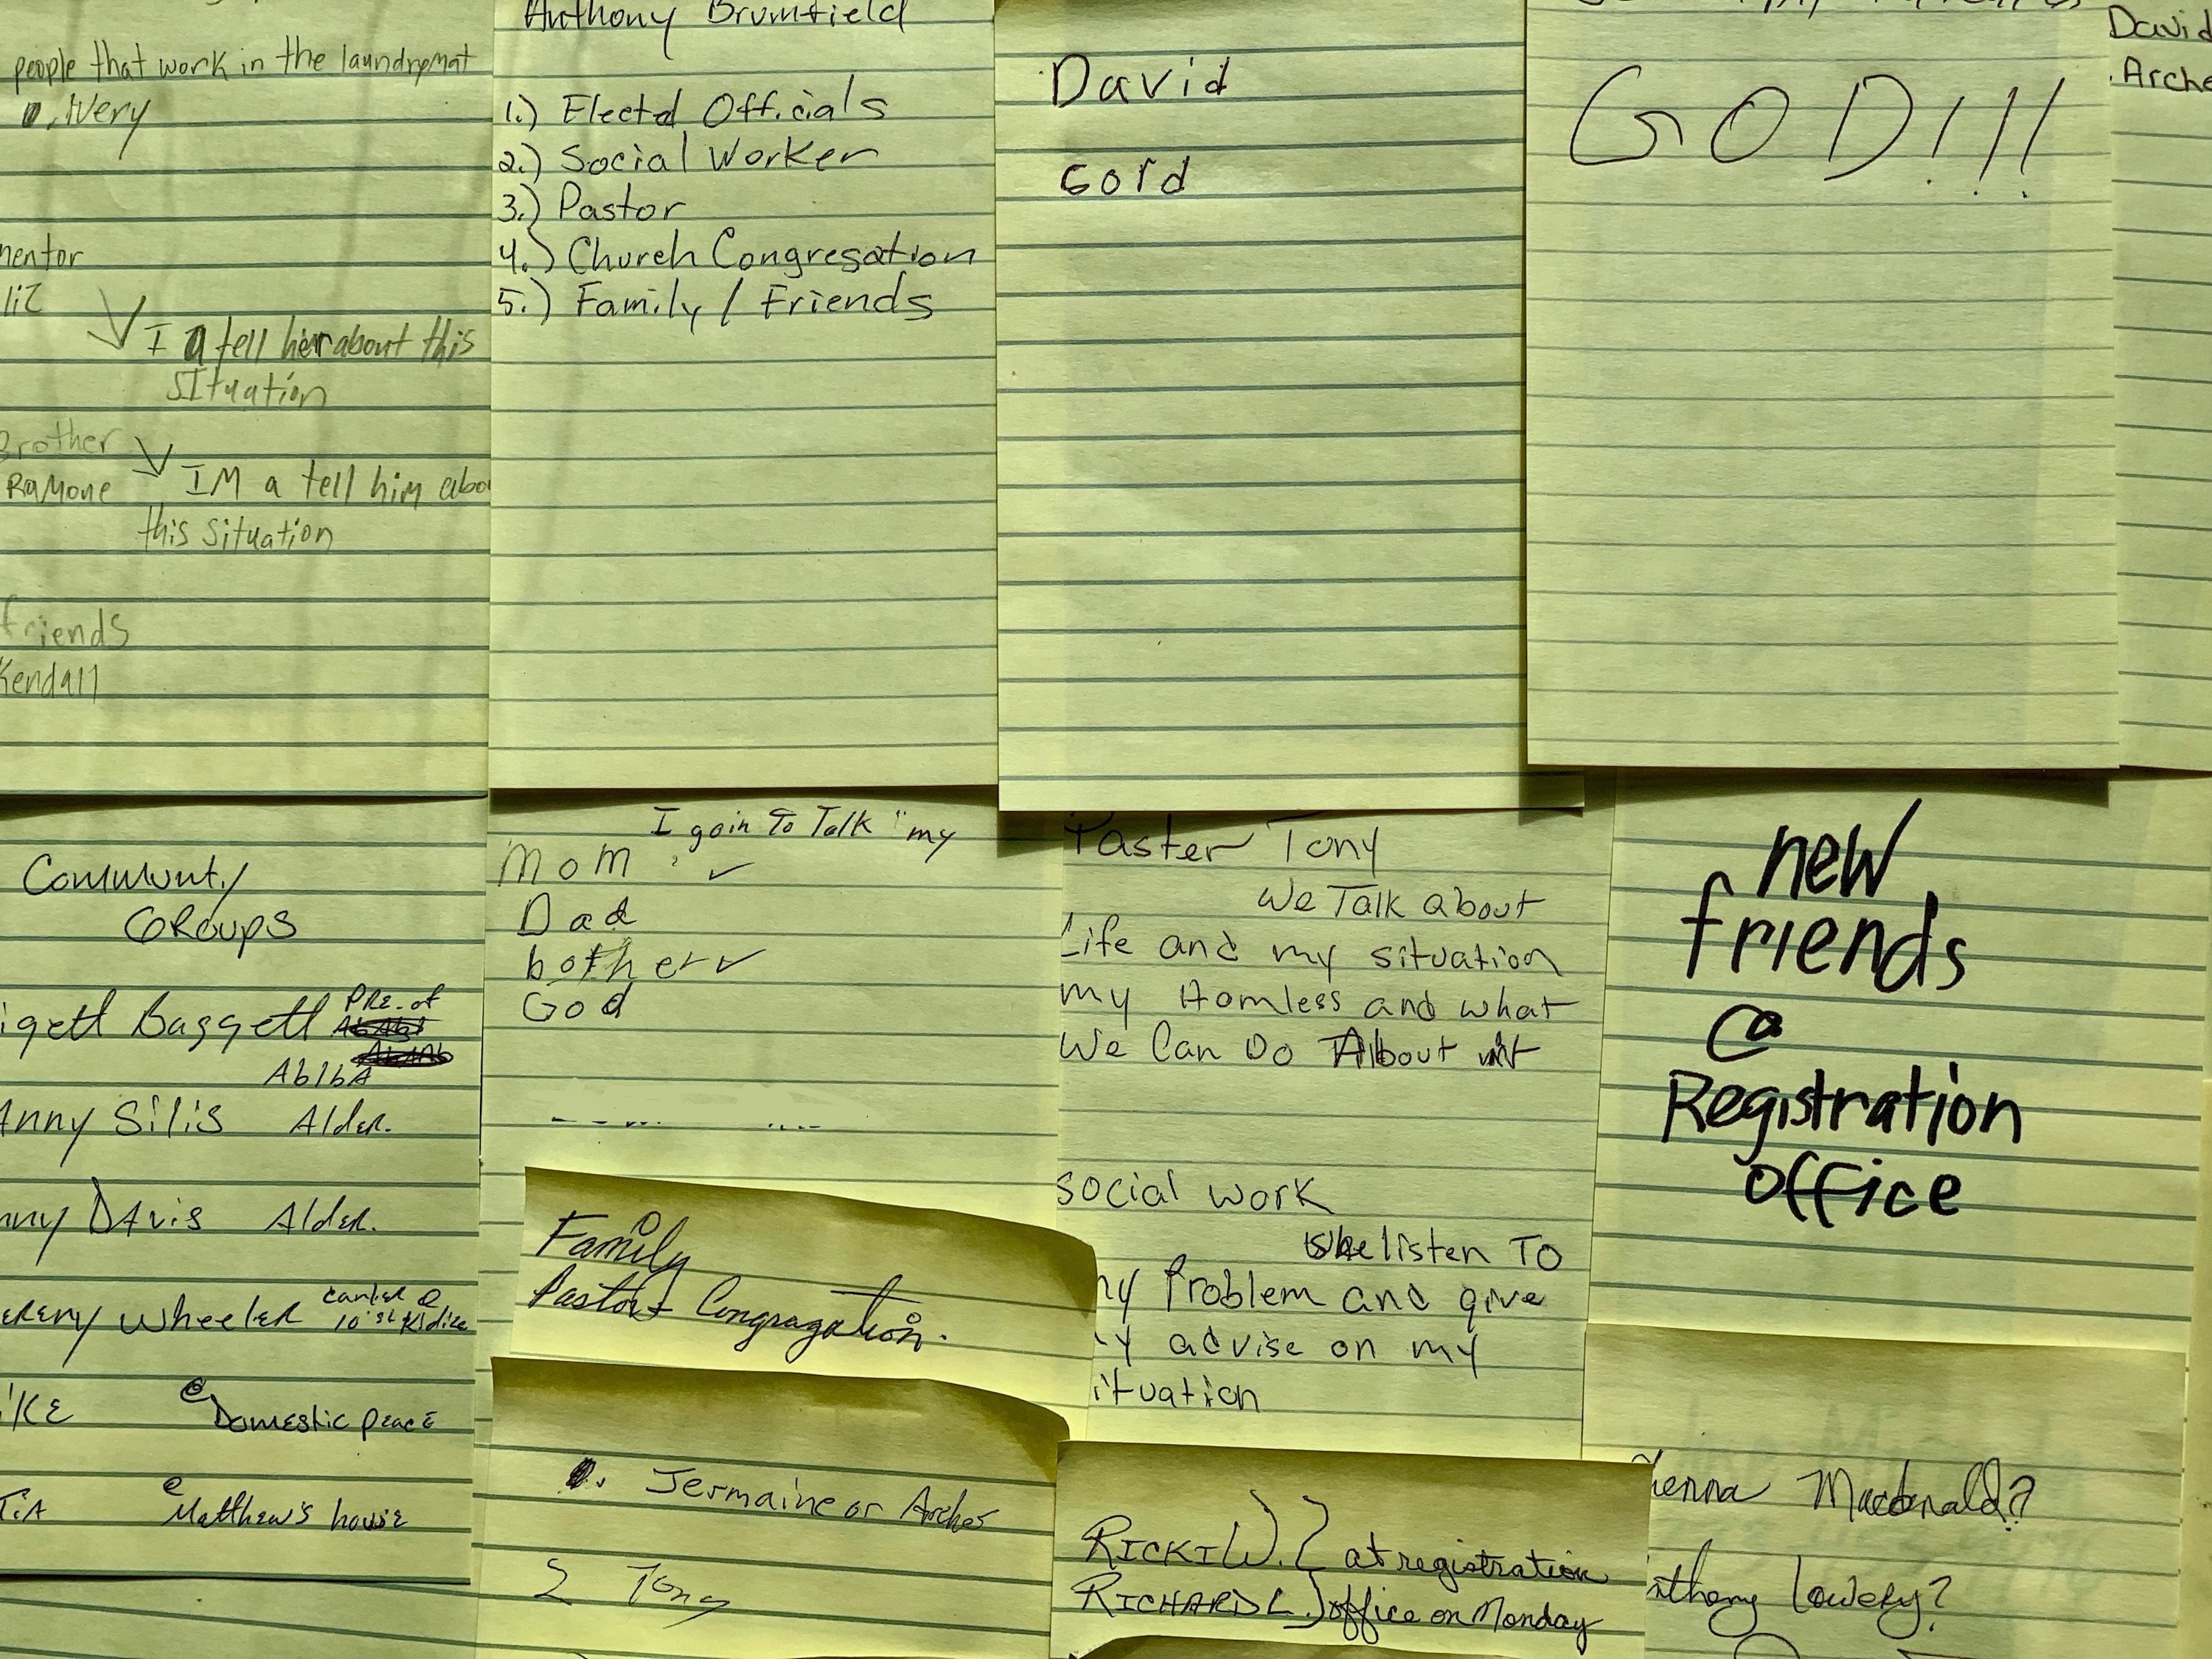 people that work in the laundrymat
mentor
I a tell her about this
SItuation
Brother
RaMone
IM a tell him abo
this situation
friends
Kendall
Anthony Brumfield
1.) Electd Officials
2.) Social Worker
3.) Pastor
4.) Church Congregation
5.) Family / Friends
David
Gord
GOD!!!
David
Arche
Community
GRoups
Baggett PRE. of
AblbA
Anny Silis Alder.
nny DAvis Alder.
EREMY WheeleR
iKE @ Domestic peacE
TiA @ Matthew's housE
I goin To Talk "my
Mom ✓
Dad
bother ✓
God
Family
Congragation.
Jermaine or Archer
2 Tony
Paster Tony
We Talk about
Life and my situation
my Homless and what
We Can Do About it
social work
she listen To
my Problem and give
my advise on my
situation
RICKI W. } at registration
RICHARD L. } office on Monday
new
friends
@
Registration
office
Macdonald?
Anthony Lowery?